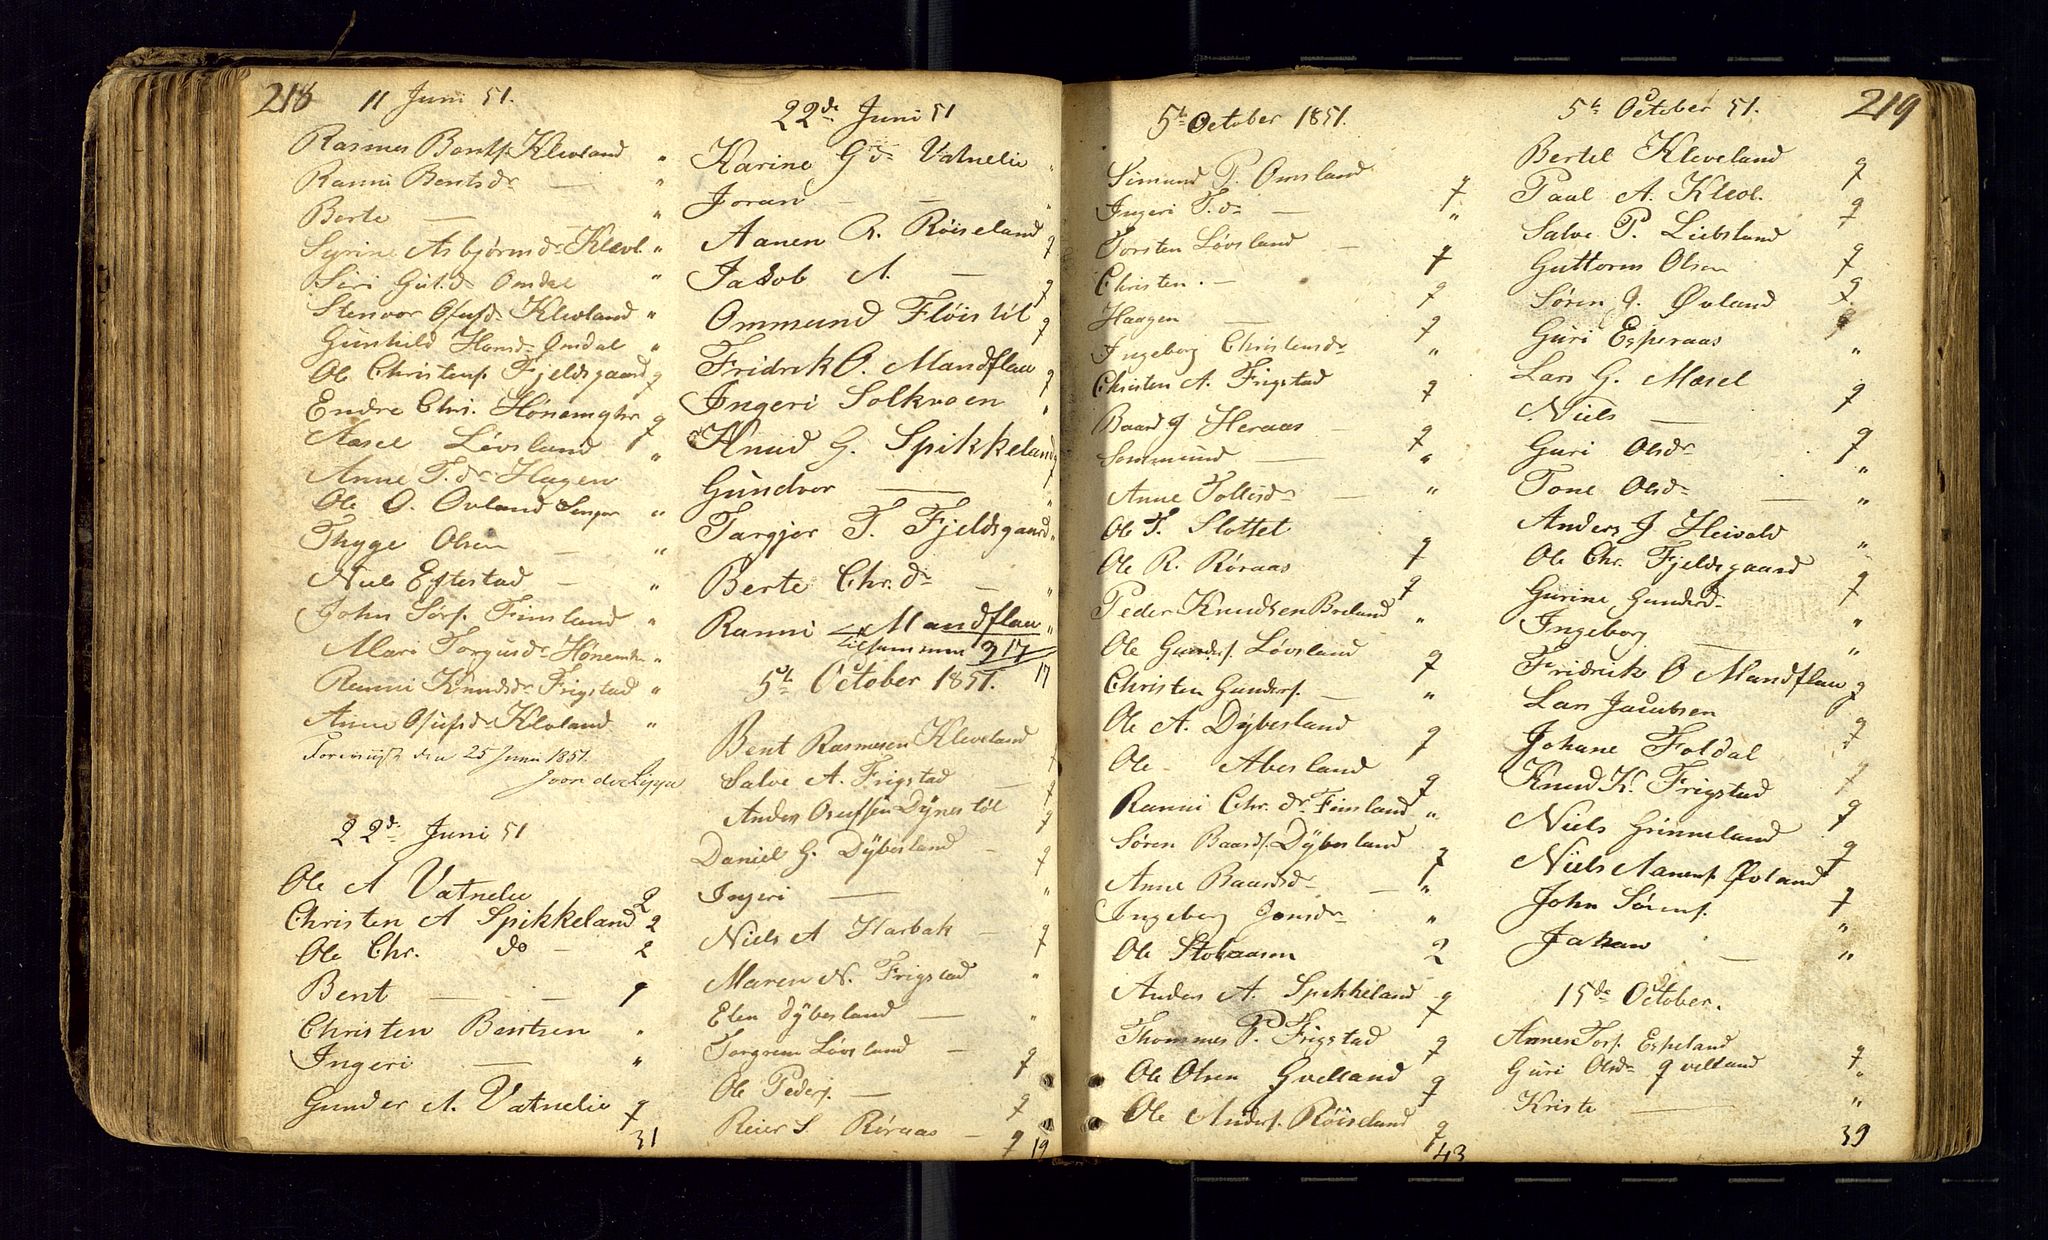 218
11 Juni 51.
Rasmus Bents. Klevland "
Ranni Bentsdr — "
Berte — "
Syrine Asbjørnsdr Klevl. "
Siri Gul.dr Omdal "
Stenvor Ofusdr Klevland "
Gunhild Hansdr Omdal "
Ole Christens. Fjeldsgaard 7
Endre Chr. Hønemyhr 7
Aasel Løvsland "
Anne T.dr Hagen
Ole O. Ovland "
Thyge Olsen — "
Niels Eftestad — "
John Sørs. Finsland "
Mari Torgusdr Hønemhr "
Ranni Knudsdr Frigstad "
Anne Ofusdr Klevland "
den 25 Juni 1851.
22de Juni 51
Ole A Vatnelie 2
Christen A Spikkeland 2
Ole Chr. do — 2
Bent — — 7
Christen Bentsen "
Ingeri — "
Gunder A. Vatnelie 7
31
22de Juni 51
Karine G dr Vatnelie "
Joran — — "
Aanen R. Røiseland 7
Jakob A. — 7
Ommund Fløistøl 7
Fridrik O. Mandflau 7
Ingeri Solkvoen "
Knud G. Spikkeland 7
Gundvor — "
Targjer T. Fjeldsgaard "
Berte Chr.dr — "
Ranni Mandflau "
tilsammen 317
17
5te October 1851.
Bent Rasmusen Kleveland 7
Salve A. Frigstad — 7
Anders Oseffsen Dynestøl 7
Daniels G. Dÿbesland — 7
Ingeri — "
Niels A Harbak — 7
Maren N. Frigstad "
Elen Dÿbesland — "
Torgrem Løvsland — 7
Ole Peders. — 7
Reier S. Røraas — 7
19
5te October 1851.
Simund P. Omsland 7
Ingeri T.dr — "
Torsten Løvsland — 7
Christen. — 7
Haagen — 7
Ingeborg Christensdr "
Christen A. Frigstad 7
Baard J Heraas — 7
Sommund — "
Anne Tollisdr — "
Ole F. Slottet 7
Ole R. Røraas 7
Peder Knudsen Breland "
Ole Gunders. Løvsland 7
Christen Gunders. — "
Ole A. Dÿbesland 7
Ole Abesland 7
Ranni Chr. dr Finsland "
Søren Baards. Dÿbesland 7
Anne Baardsdr — "
Ingeborg Jonsdr "
Ole Stokaasen 2
Anders A. Spikkeland 7
Thommes P. Frigstad 7
Ole Olsen Qvelland 7
Ole Anders. Røiseland 7
43
219
5te October 51.
Bertel Kleveland 7
Paul A. Klevl. 7
Salve P. Liebsland 7
Guttorm Olsen 7
Søren J. Øvland 7
Guri Esperaas "
Lars G. Mæsel 7
Niels — 7
Guri Olsdr "
Tone Olsdr — "
Anders J Heivold "
Ole Chr. Fjeldsgaard 7
Gurine Gundersdr "
Ingeborg — "
Fridrik O Mandflau 7
Lars Jacobsen 7
Johane Foldal 7
Knud K. Frigstad 7
Niels Grinneland 7
Niels Aanens. Øvland 7
John Sørens. "
Johan — "
15de October.
Annes Tors. Espeland 7
Guri Olsdr Qvelland "
Kriste — "
39